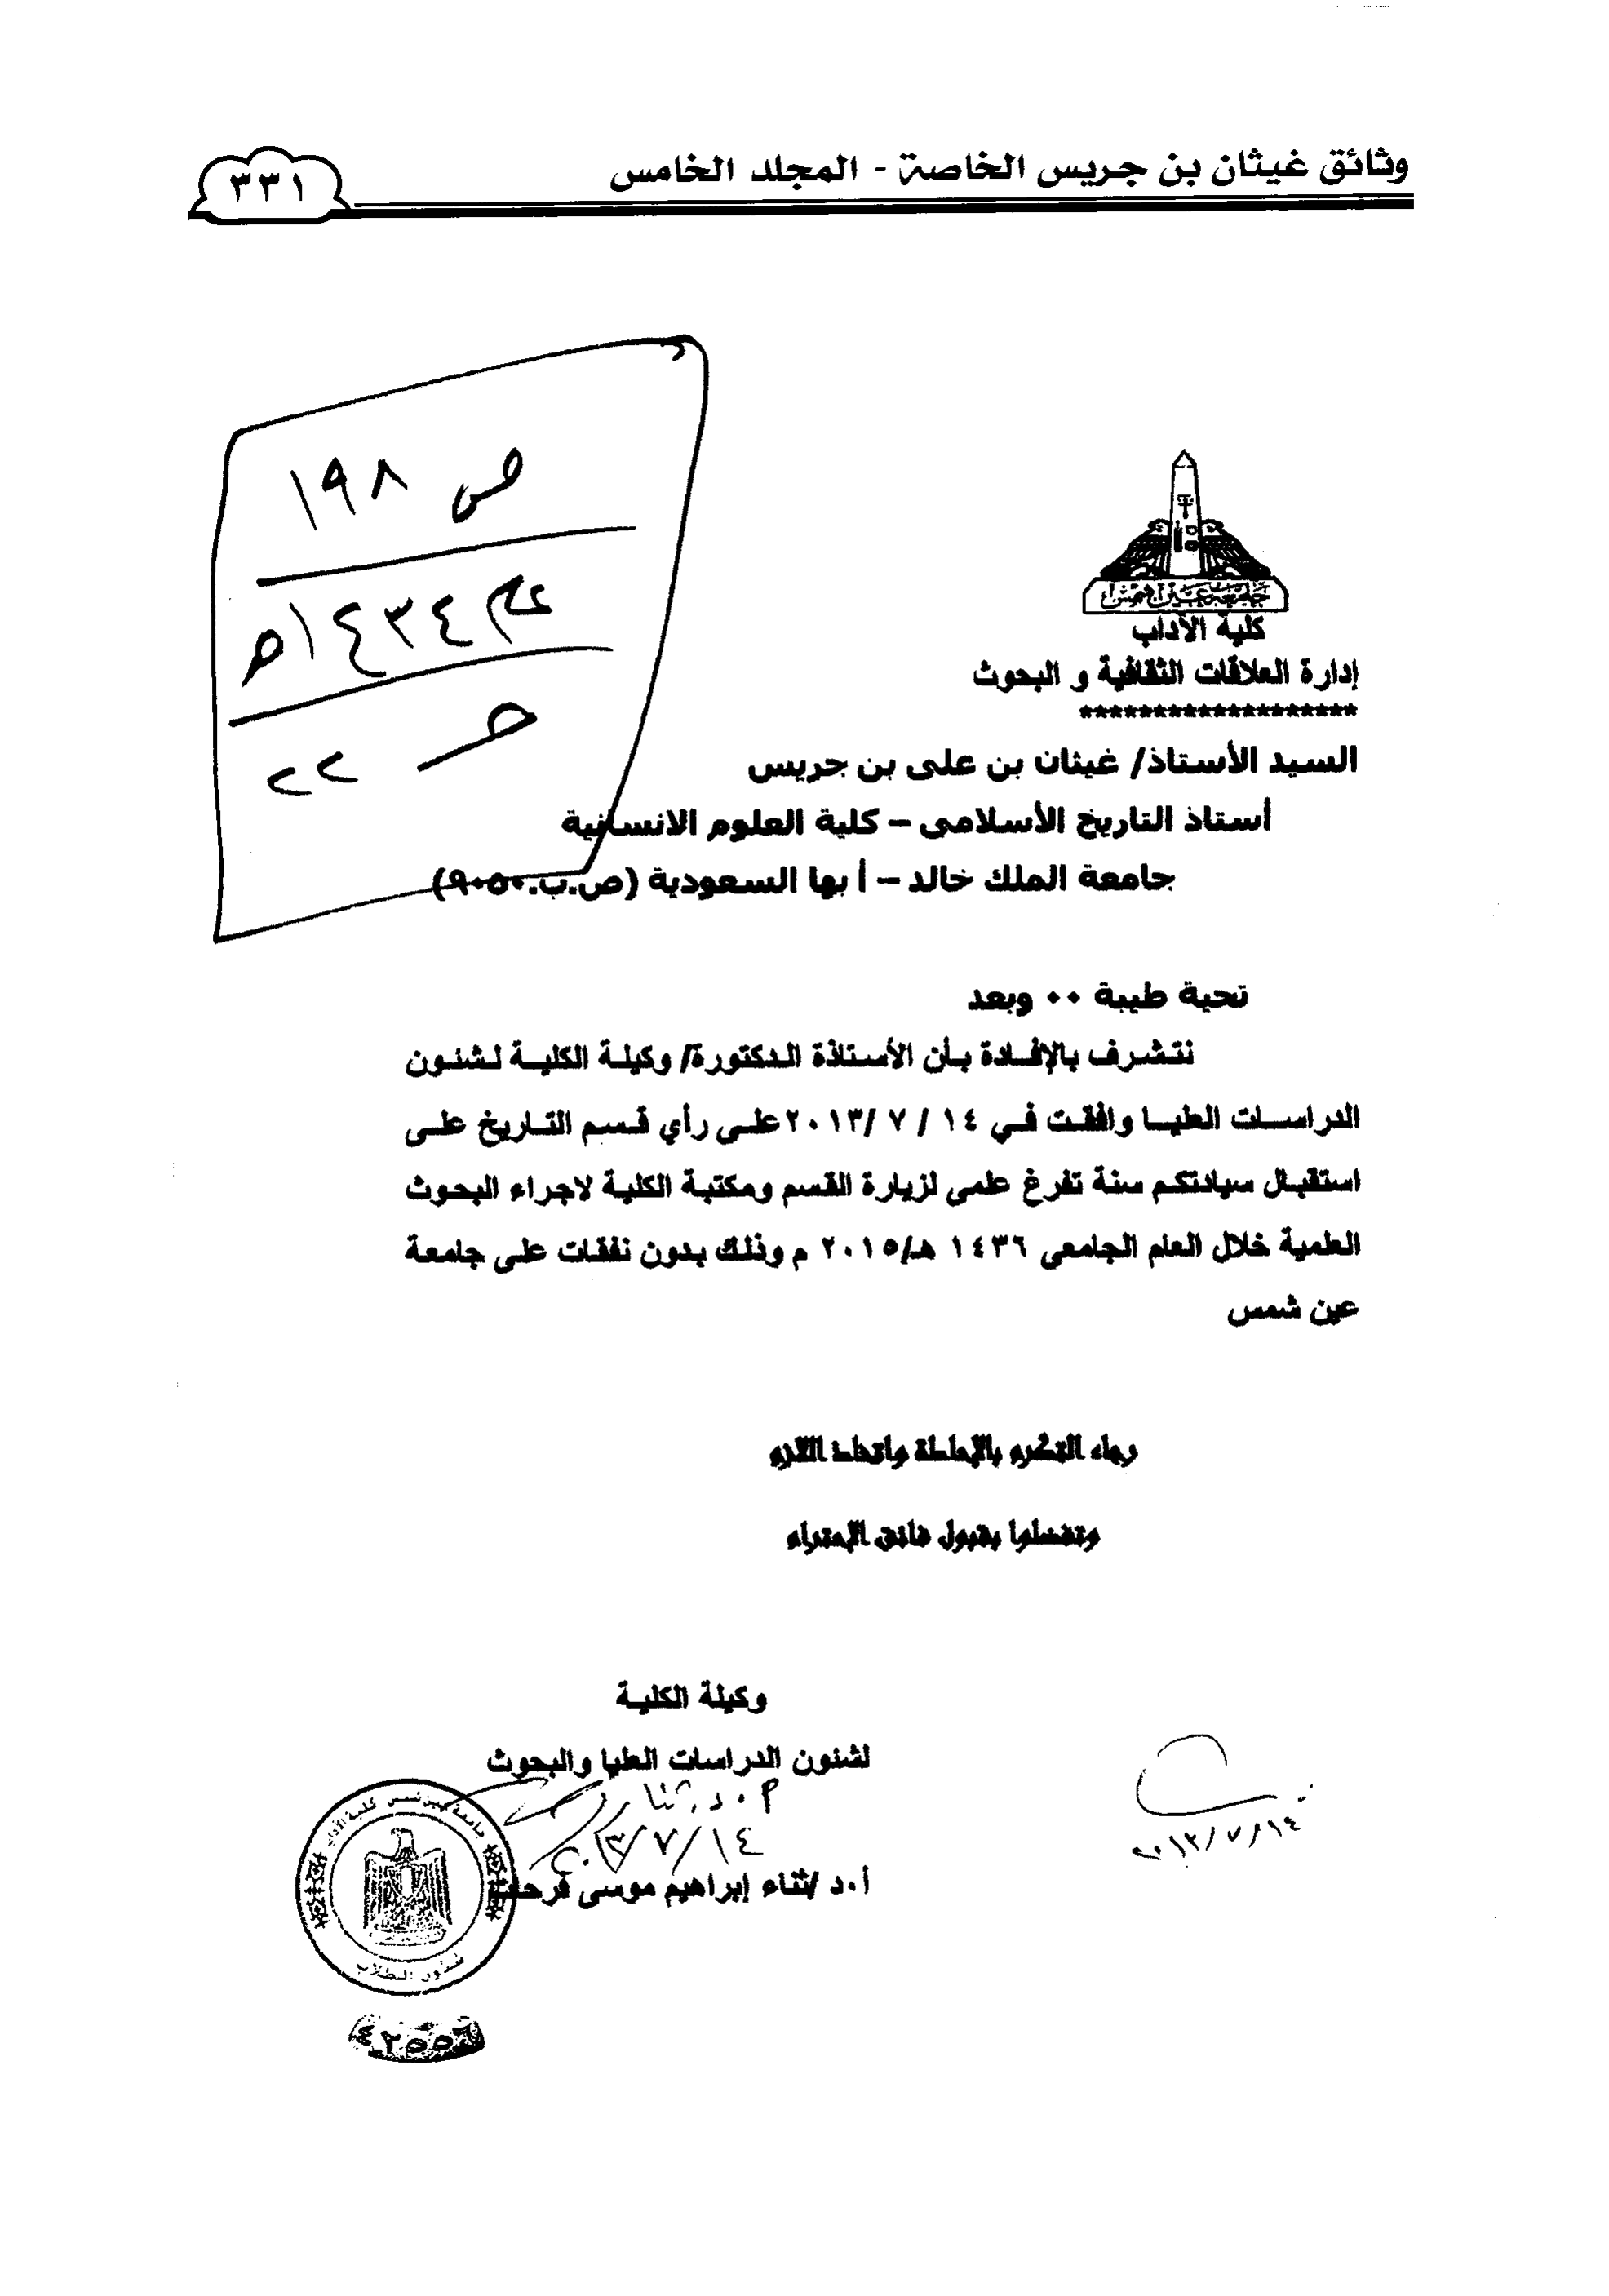 وثائق غيثان بن جريس الخاصة - المجلد الخامس
٣٣١
ص ١٩٨
١٤٣٤هـ
ح ٢٢
جامعة عين شمس
كلية الآداب
إدارة العلاقات الثقافية و البحوث
*******************
السيد الأستاذ/ غيثان بن على بن جريس
أستاذ التاريخ الأسلامى – كلية العلوم الانسانية
جامعة الملك خالد – أ بها السعودية (ص.ب.٩٠٥٠)
تحية طيبة ٠٠ وبعد
نتشرف بالإفادة بأن الأستاذة الدكتورة/ وكيلة الكلية لشئون
الدراسات العليا وافقت في ١٤ / ٧ /٢٠١٣ على رأي قسم التاريخ على
استقبال سيادتكم سنة تفرغ علمى لزيارة القسم ومكتبة الكلية لاجراء البحوث
العلمية خلال العام الجامعى ١٤٣٦ هـ/٢٠١٥ م وذلك بدون نفقات على جامعة
عين شمس
رجاء التكرم بالإحاطة واتخاذ اللازم
وتفضلوا بقبول فائق الإحترام
وكيلة الكلية
لشئون الدراسات العليا والبحوث
أ.د ثناء
٢٠١٣/٧/١٤
أ.د /ثناء إبراهيم موسى فرحات
٢٠١٣/٧/١٤
جامعة عين شمس كلية الآداب
شئون الطلاب
٤٢٥٥٦